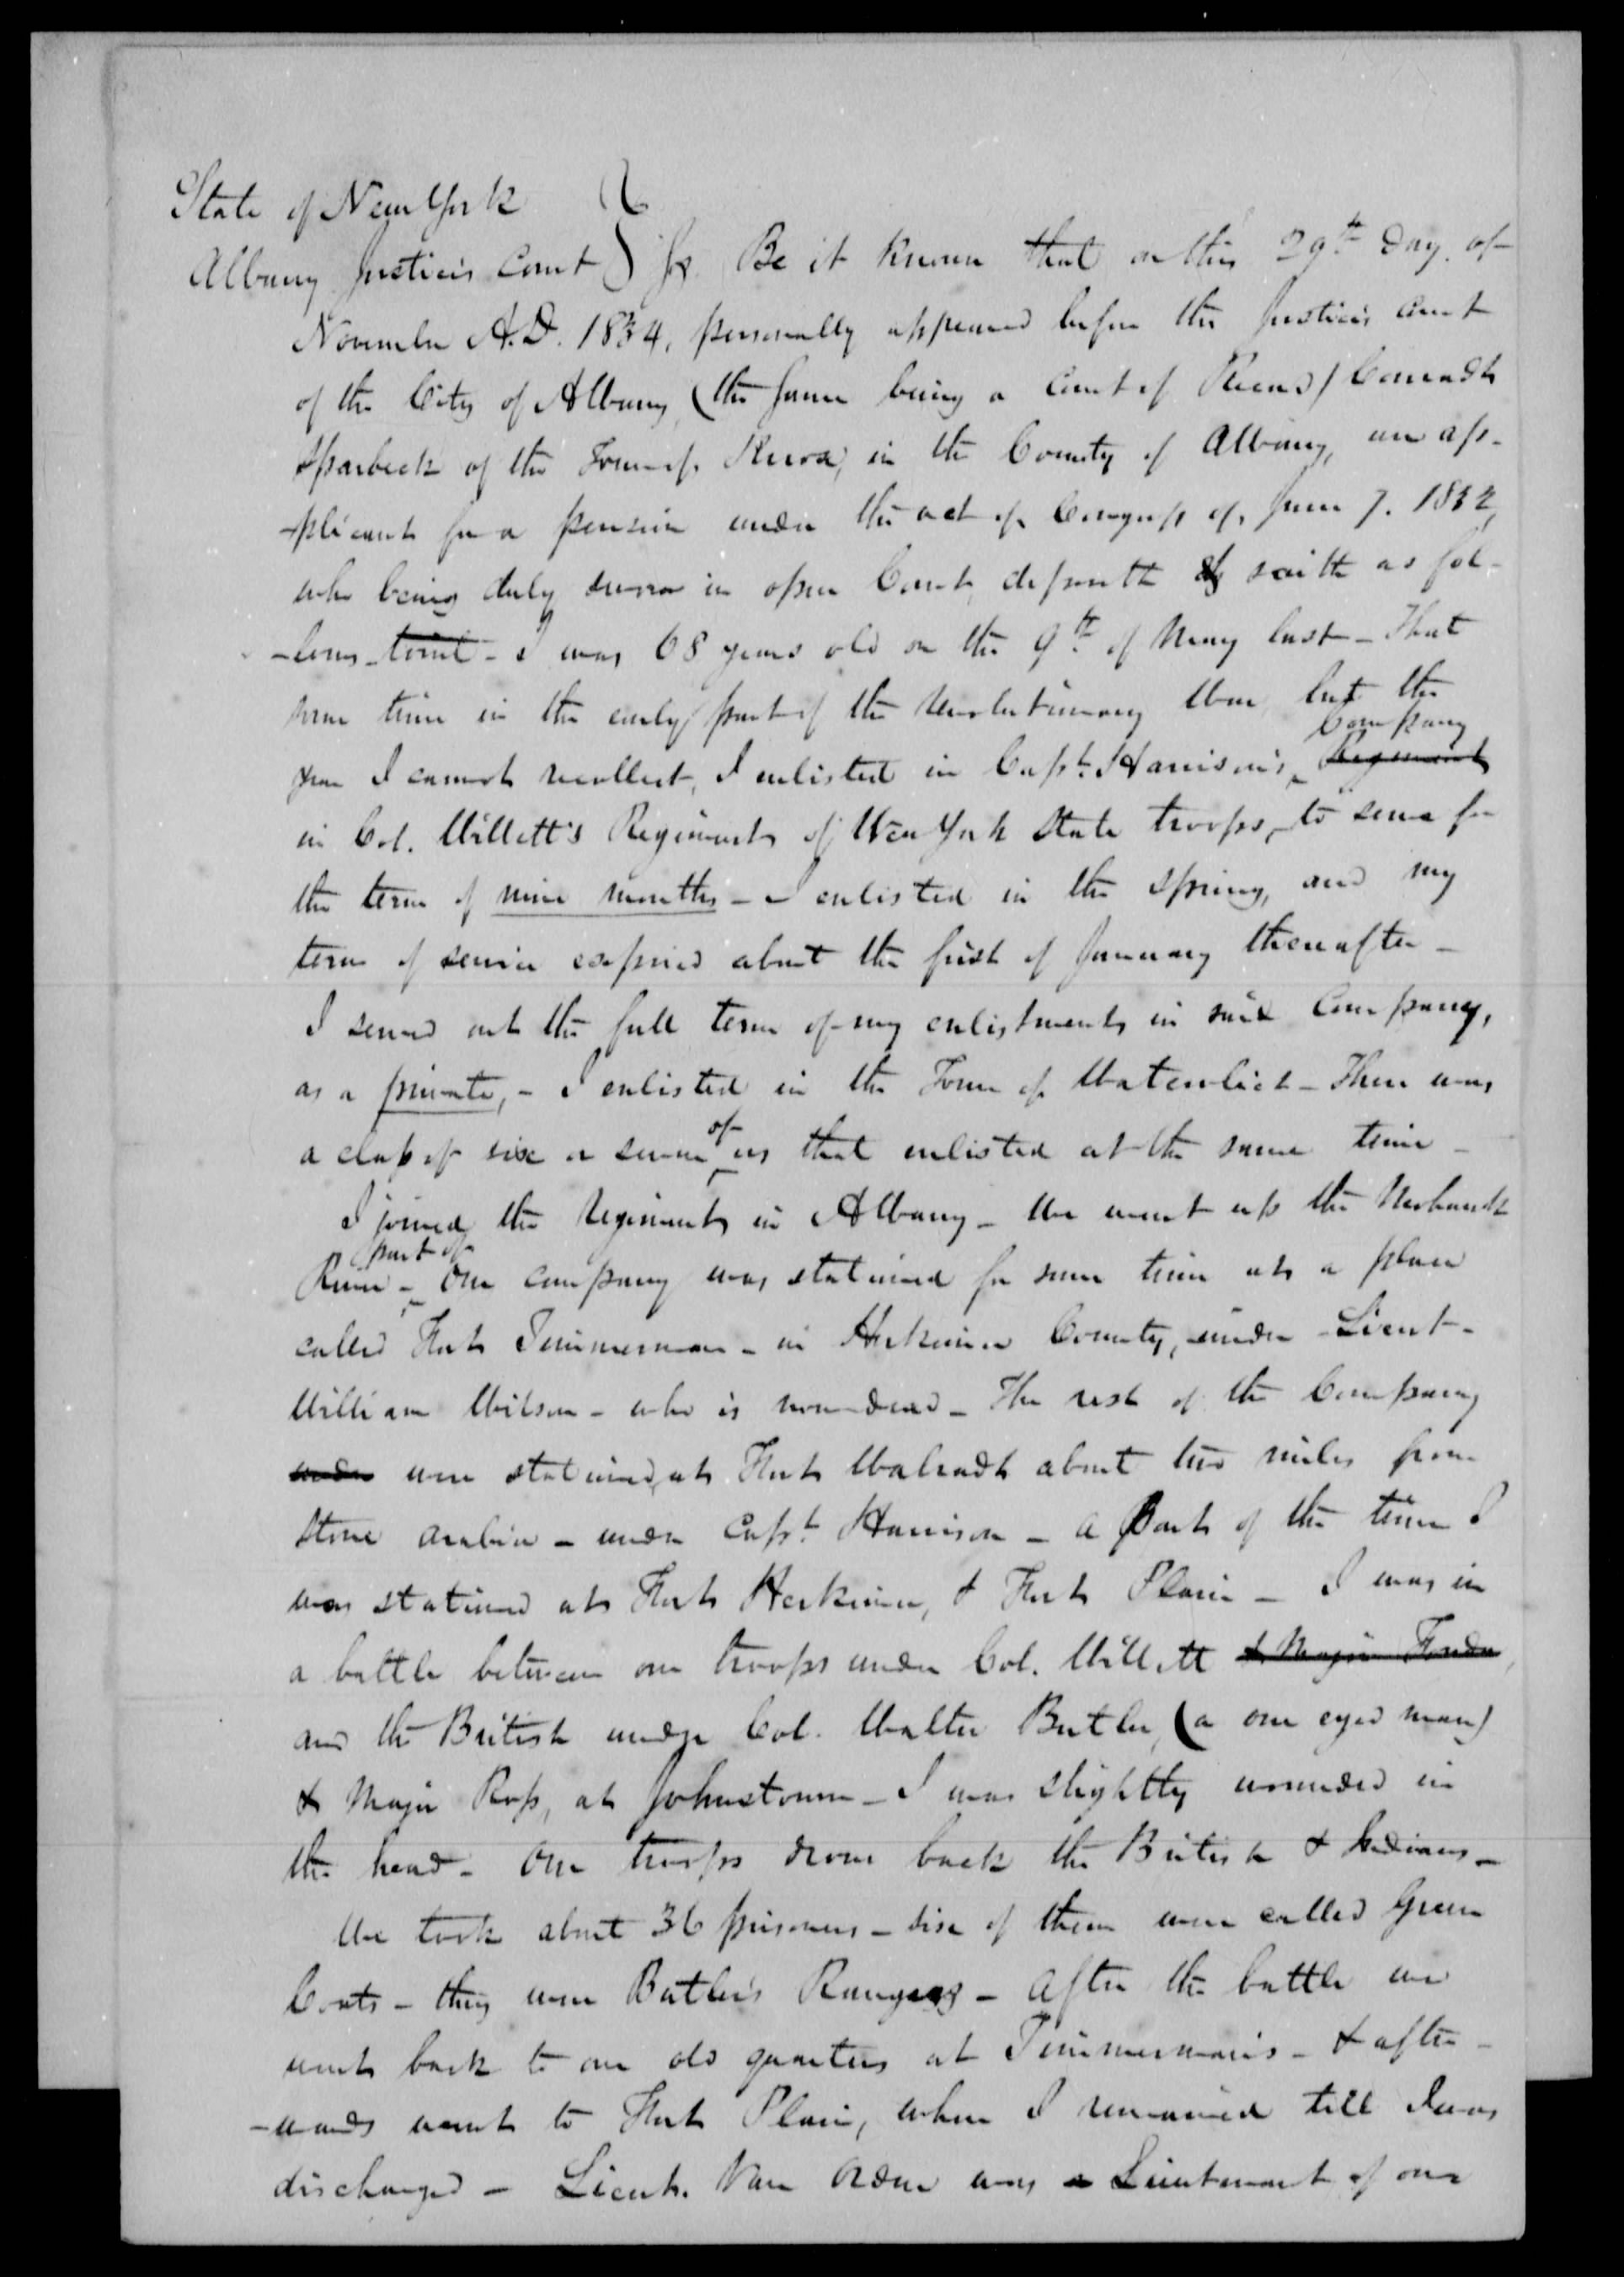 State of New York
Albany Justices Court } ss. Be it known that on this 29th day of
November A.D. 1834, personally appeared before the Justices Court
of the City of Albany (the same being a Court of Record) Conradt
Sparbeck of the Town of Knox, in the County of Albany, an ap-
-plicant for a pension under the act of Congress of June 7. 1832,
who being duly sworn in open Court, deposeth & saith as fol-
-lows towit - I was 68 years old on the 9th of May last - That
some time in the early part of the Revolutionary War, but the
Company
year I cannot recollect, I enlisted in Capt. Harrison's Regiment
in Col. Willett's Regiment of New York State troops, to serve for
the term of nine months - I enlisted in the Spring, and my
term of service expired about the first of January thereafter -
I served out the full term of my enlistment in said Company,
as a private, - I enlisted in the Town of Watervliet - There was
a class of six or seven of us that enlisted at the same time -
I joined the Regiment in Albany - We went up the Mohawk
part of
River - Our company was stationed for some time at a place
called Fort Timmerman - in Herkimer County, under Lieut.
William Wilson - who is now dead - The rest of the Company
under were stationed at Fort Walradt about two miles from
Stone Arabia - under Capt. Harrison - a Part of the time I
was stationed at Fort Herkimer, & Fort Plain - I was in
a battle between our troops under Col. Willett & Major Fonda,
and the British under Col. Walter Butler, (a one eyed man)
& Major Ross, at Johnstown - I was slightly wounded in
the head - Our troops drove back the British & Indians -
We took about 36 prisoners - six of them were called Green
Coats - they were Butler's Rangers - After the battle we
went back to our old quarters at Timmerman's - & after-
-wards went to Fort Plain, where I remained till I was
discharged - Lieut. Van Orden was a Lieutenant of our